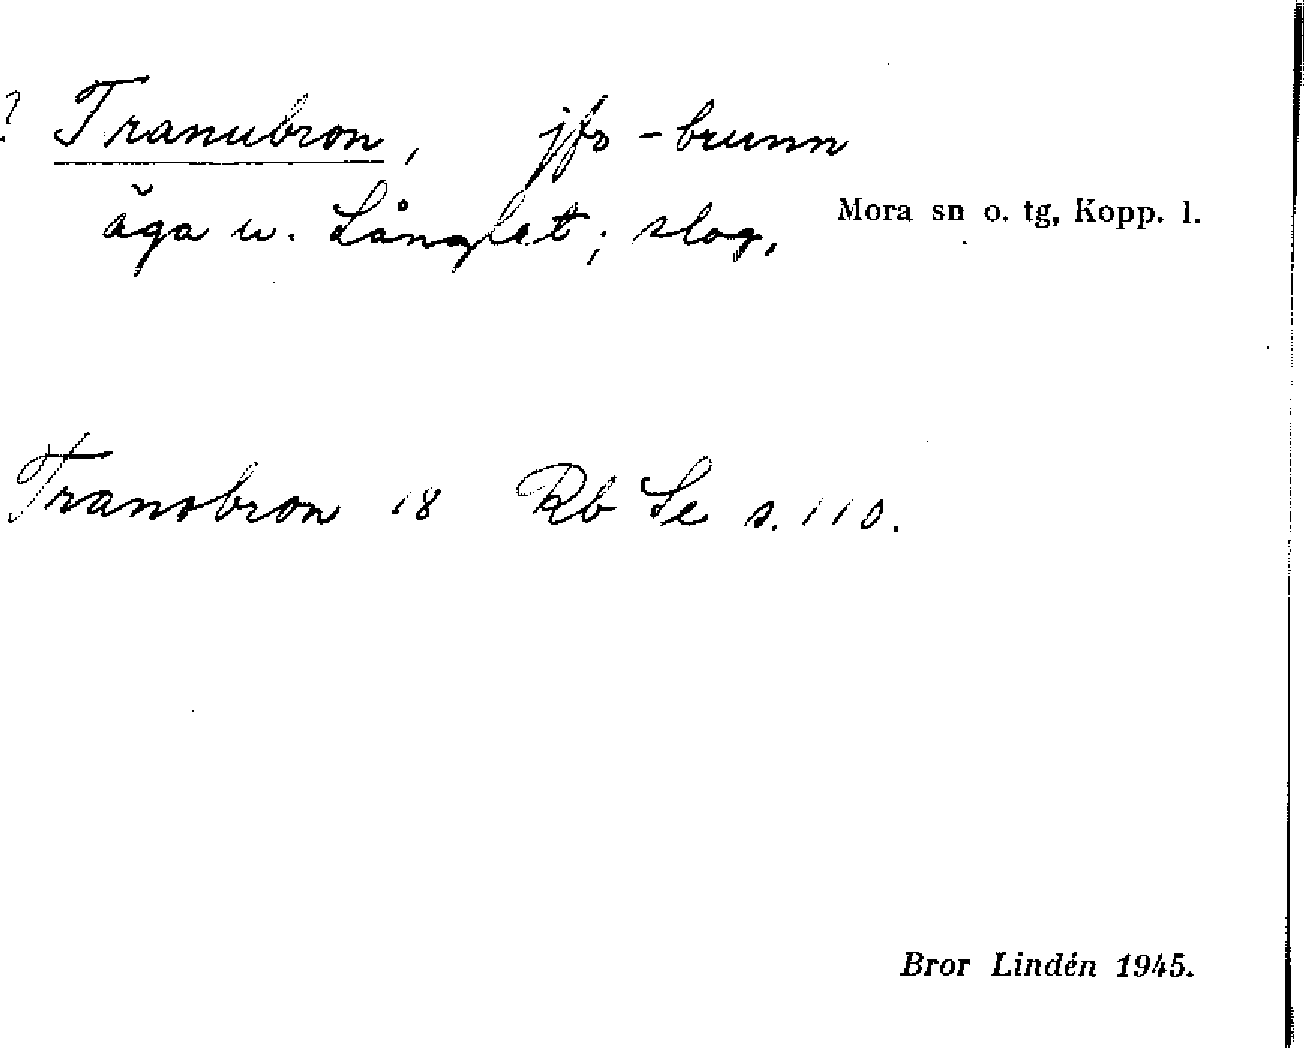 ? Tranubron, jfr -brunn
äga u. Långlet; slog.
Mora sn o. tg, Kopp. l.
Tranobron 18 Rb Se s. 110.
Bror Lindén 1945.